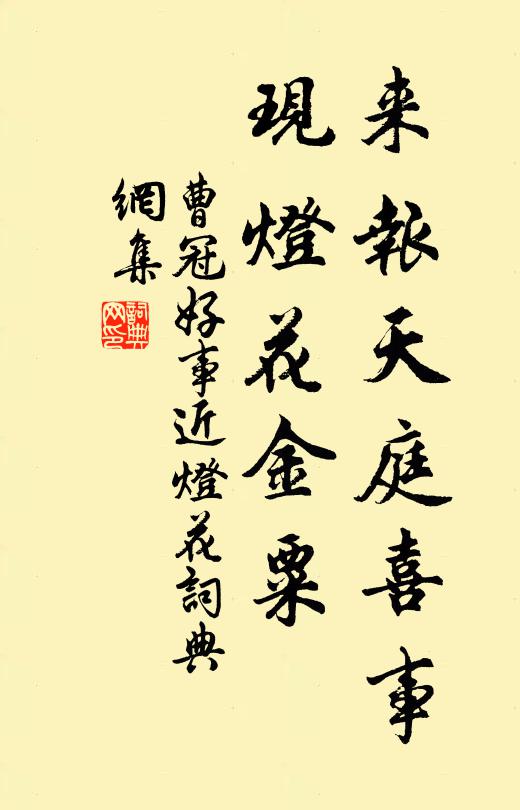 来報天庭喜事
現燈花金粟
曹冠好事近燈花詞典
網集
詞典
网印